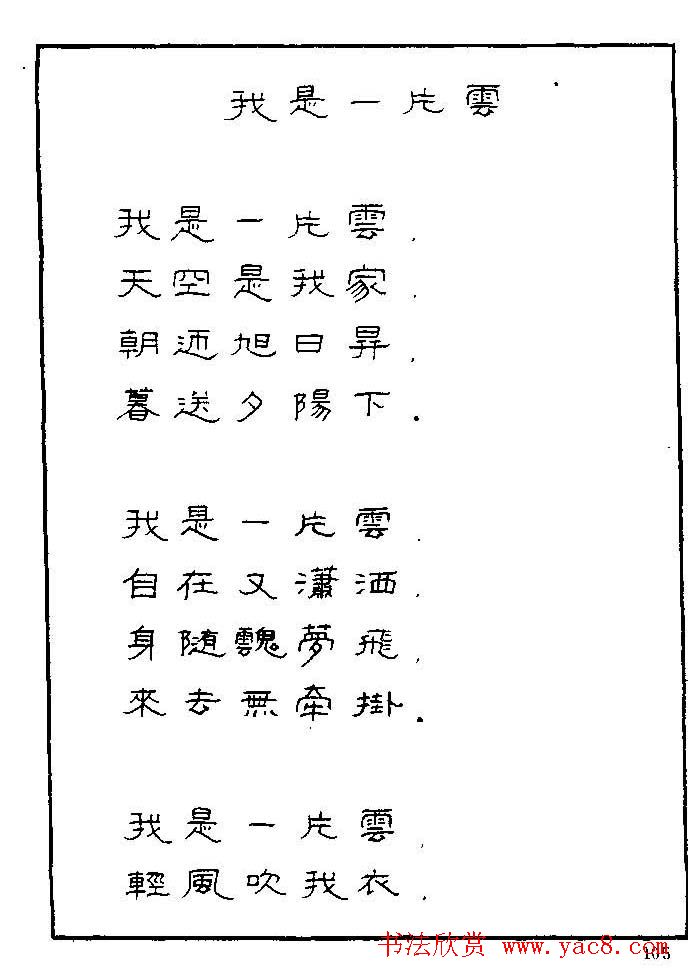 我是一片雲
我是一片雲，
天空是我家，
朝迊旭日昇，
暮送夕陽下。
我是一片雲，
自在又瀟洒，
身隨魂夢飛，
來去無牽掛。
我是一片雲，
輕風吹我衣，
书法欣赏 www.yac8.com
105